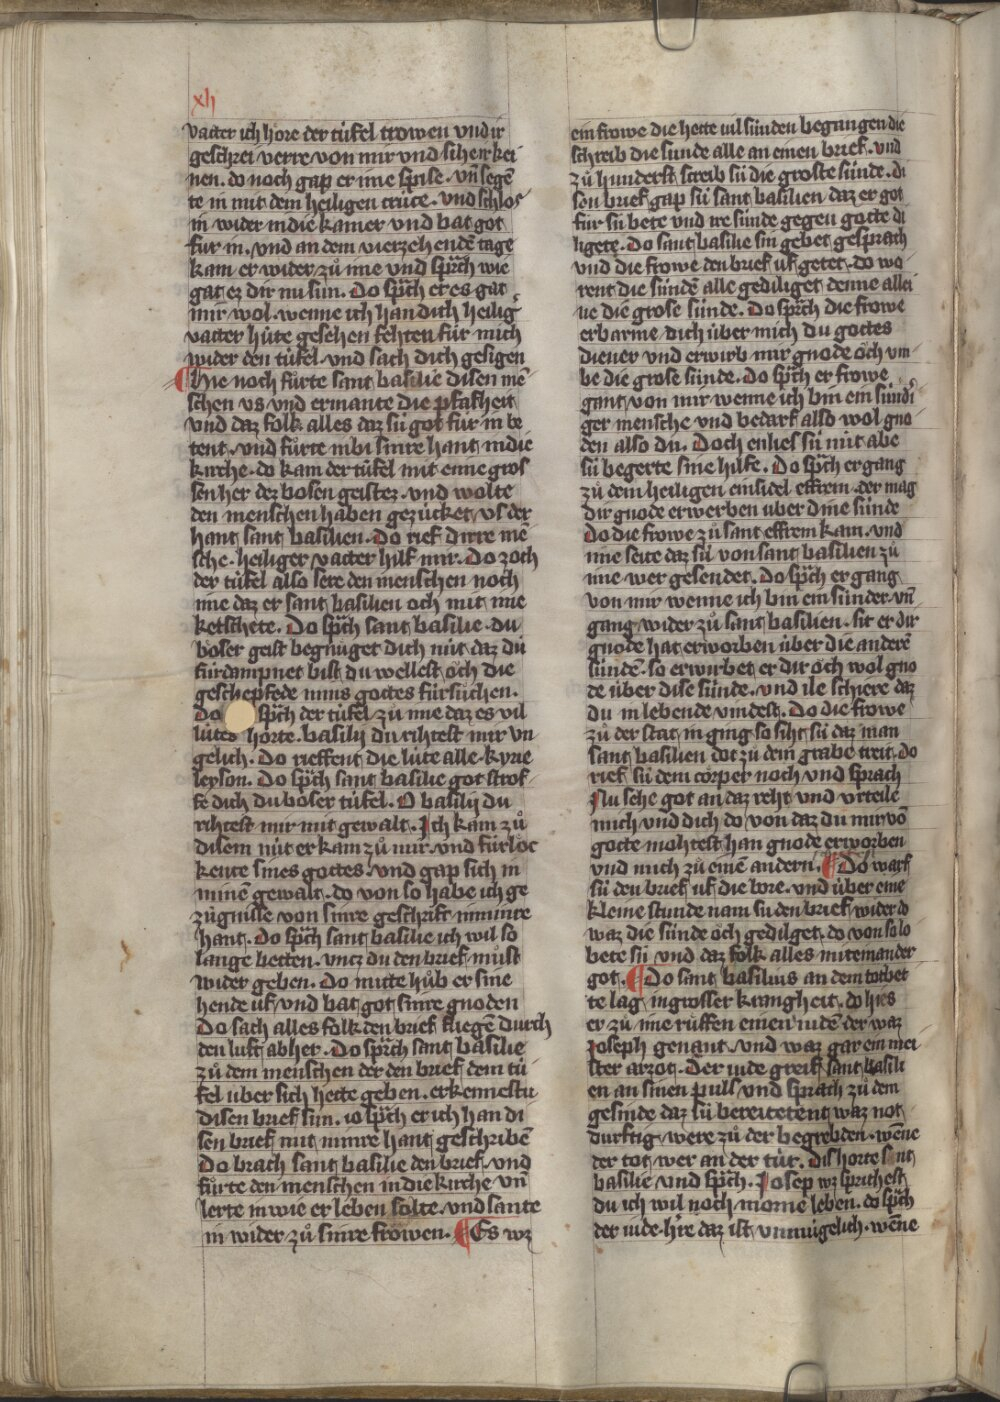 xlj
vatter ich hore der tùfel trowen vnd ir
geschrei verre von mir vnd sihe ir kei
nen. do noch gap er ime spise. vñ segē
te in mit dem heiligen crúce. vnd schlos
in wider in die kamer vnd bat got
fúr in. vnd an dem vierzehenden tage
kam er wider zů ime vnd sp̈ch wie
gat ez dir nu sun. Do sp̈ch er es gat
mir wol. wenne ich han dich heilig͛
vatter húte gesehen fehten fúr mich
wider den túfel vnd sach dich gesigen
¶ Hie noch fůrte sant basilie disen mē
schen vs vnd ermante die pfafheit
vnd daz folk alles daz sú got fúr in be
tent. vnd fůrte in bi sinre hant in die
kirche. do kam der túfel mit eime gros
sen her der bosen geister. vnd wolte
den menschen haben gezúcket vs der
hant sant basilien. Do rief dirre mē
sche. heiliger vatter hilf mir. Do zoch
der túfel also sere den menschen noch
ime daz er sant basilien och mit ime
ketschete. Do sp̈ch sant basilie. du
böser geist begnúget dich nút daz du
fúrdampnet bist du wellest öch die
geschepfede mins gottes fúrsůchen.
Do sp̈ch der túfel zů ime daz es vil
lútes horte. basilij du rihtest mir vn
gelich. Do rieffent die lúte alle. kyrie
leyson. Do sp̈ch sant basilie got strof
fe dich du böser túfel. O basilij du
rihtest mir mit gewalt. Ich kam zů
disem nút er kam zů mir vnd fúrloc
kente sines gottes. vnd gap sich in
minē gewalt. do von so habe ich ge
zúgnisse von sinre geschrift in minre
hant. Do sp̈ch sant basilie ich wil so
lange betten. vncz du den brief můst
wider geben. Do mitte hůb er sine
hende uf vnd bat got sinre gnoden
Do sach alles folk den brief fliegē durch
den luft abher. Do sp̈ch sant basilie
zů dem menschen der den brief dem tú
fel uber sich hette geben. erkennestu
disen brief sun. io sp̈ch er ich han di
sen brief mit minre hant geschribē
Do brach sant basilie den brief. vnd
fůrte den menschen in die kirche vñ
lerte in wie er leben solte. vnd sante
in wider zů sinre fröwen. ¶ Es wz
ein frowe die hette vil súnden begangen die
schreib die sunde alle an einen brief. vnd
zů hunderst screib sú die groste súnde. di
sen brief gap sú sant basilien daz er got
fúr sú bete vnd ire súnde gegen gotte di
ligete. Do sant basilie sin gebet gesprach
vnd die frowe den brief uf getet. do wo
rent die súnde alle gediliget denne allei
ne die grose súnde. Do sp̈ch die frowe
erbarme dich úber mich du gottes
diener vnd erwirb mir gnode öch vm
be die grose súnde. Do sp̈ch er frowe
gant von mir wenne ich bin ein súndi
ger mensche vnd bedarf also wol gno
den also du. Doch enlies sú nút abe
sú begerte sine hilfe. Do sp̈ch er gang
zů dem heiligen einsidel effrem. der mag
dir gnode erwerben uber dine súnde
Do die frowe zů sant effrem kam. vnd
ime seite daz sú von sant basilien zů
ime wer gesendet. Do sp̈ch er gang
von mir wenne ich bin ein súnder. vñ
gang wider zů sant basilien. sit er dir
gnode hat erworben úber die anderē
súndē. so erwirbet er dir öch wol gno
de úber dise súnde. vnd ile schiere daz
du in lebende vindest. Do die frowe
zů der stat in ging so siht sú daz man
sant basilien dot zů dem grabe treit. do
rief sú dem cörper noch vnd sprach
Nu sehe got an daz reht vnd vrteile
mich vnd dich do von daz du mir vō
gotte mohtest han gnode erworben
vnd mich zů einē andern. ¶ Do warf
sú den brief uf die bore. vnd úber eine
kleine stunde nam su den brief wider do
waz die súnde öch gedilget. do von so lo
bete sú vnd daz folk alles miteinander
got. ¶ Do sant basilius an dem totbet
te lag in grosser krangheit. do hies
er zů ime růffen einen iuden der waz
Joseph genant. vnd waz gar ein mei
ster arzot. Der iude greif sant basili
en an sinen puls vnd sprach zů dem
gesinde daz sú bereitetent waz not
durftig were zů der begrebden. wēne
der tot wer an der túr. Dis horte sant
basilie vnd sp̈ch. Josep wz sprichest
du ich wil noch morne leben. do sp̈ch
der iude. h͛re daz ist vnmúgelich. wēne